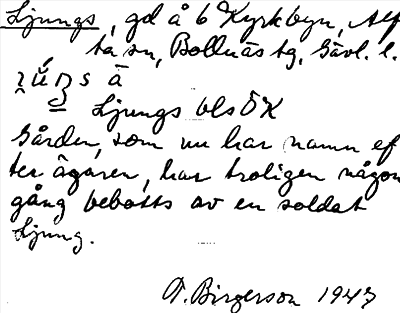 Ljungs, gd å 6 Kyrkbyn, Alf
ta sn, Bollnäs tg, Gävl. l.
Ljungs ols ÖK
Gården, som nu har namn ef
ter ägaren, har troligen någon
gång bebotts av en soldat
Ljung.
T. Birgerson 1947